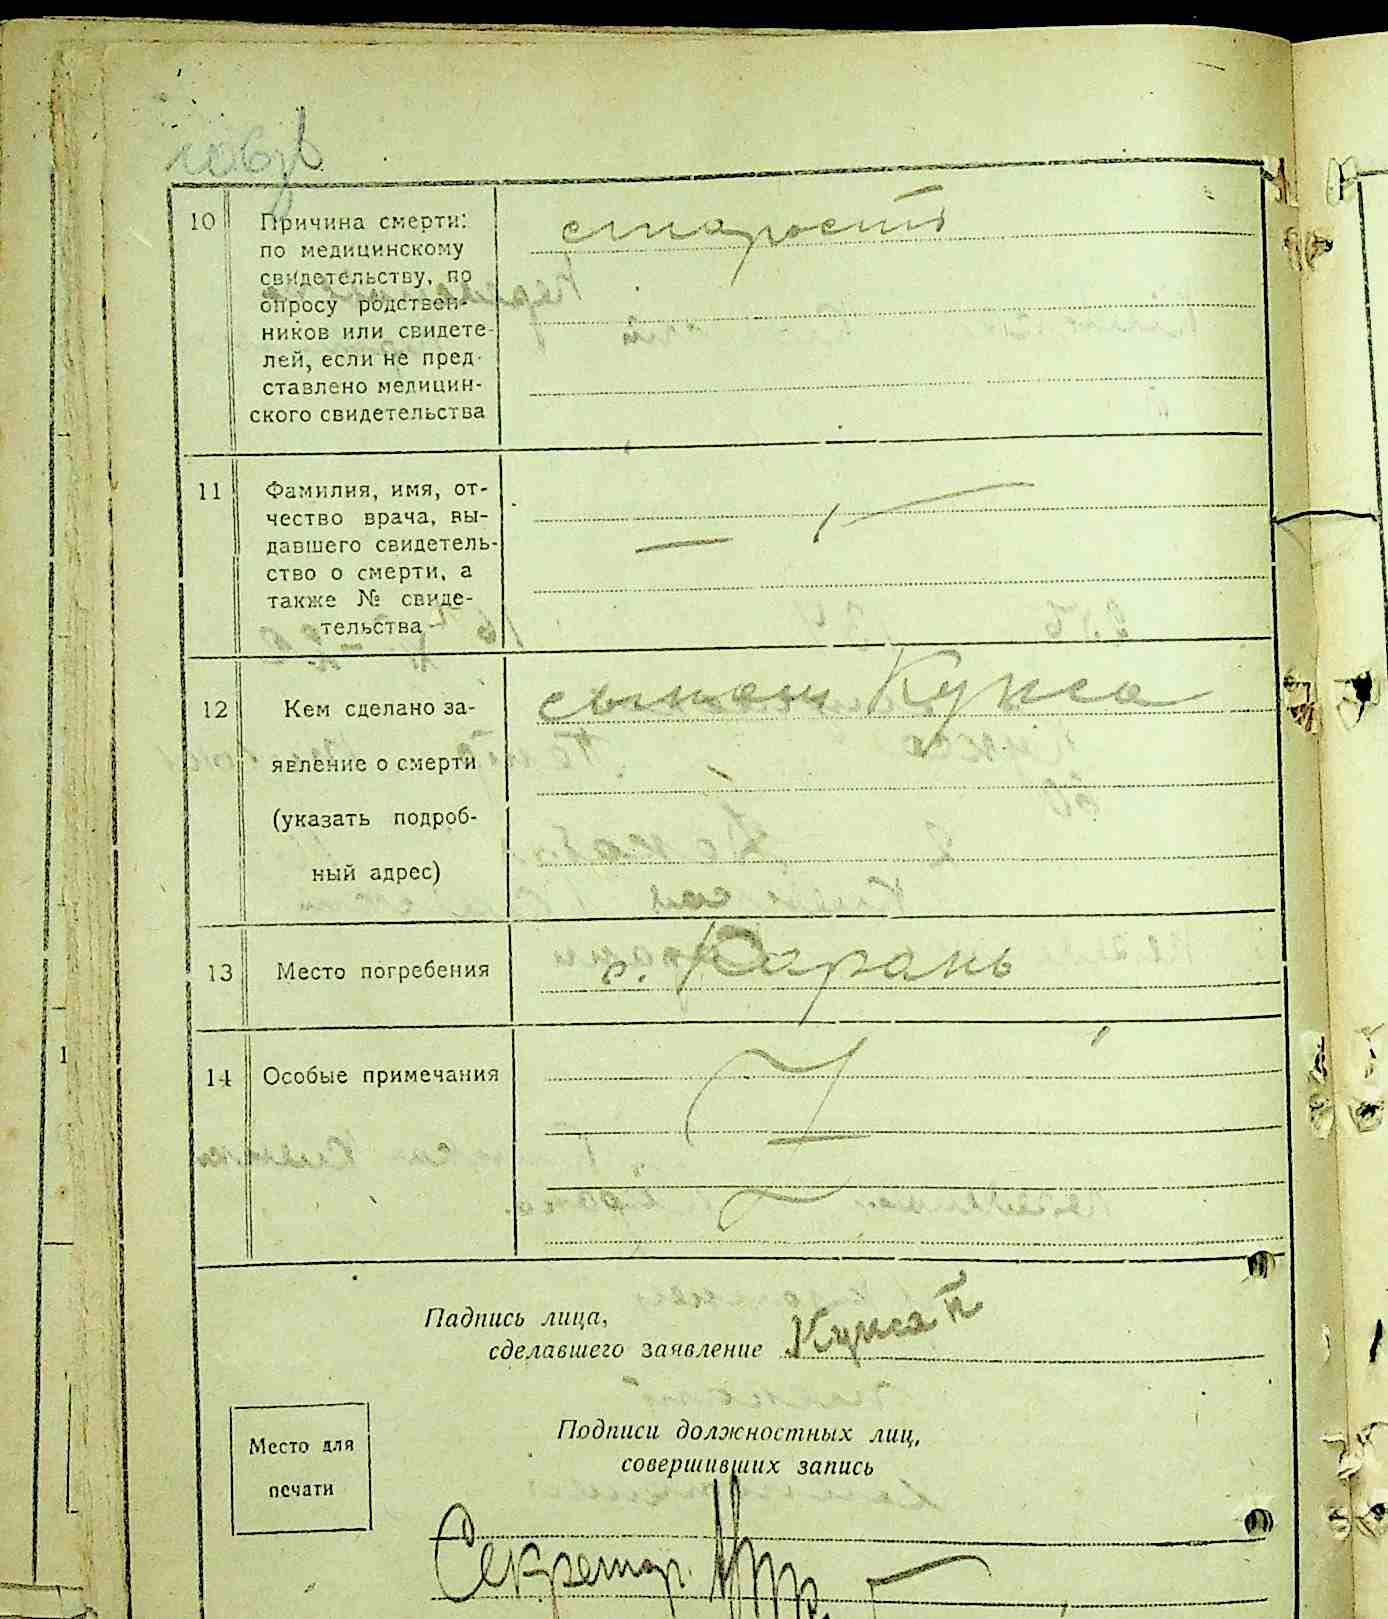 10 Причина смерти: старость
по медицинскому
свидетельству, по
опросу родствен-
ников или свидете-
лей, если не пред-
ставлено медицин-
ского свидетельства
11 Фамилия, имя, от-
чество врача, вы-
давшего свидетель-
ство о смерти, а
также № свиде-
тельства
12 Кем сделано за- сыном Кукса
явление о смерти
(указать подроб-
ный адрес)
13 Место погребения с. Карань
14 Особые примечания
Падпись лица,
сделавшего заявление Кукса П
Подписи должностных лиц,
совершивших запись
Место для
печати
Секретар.
1